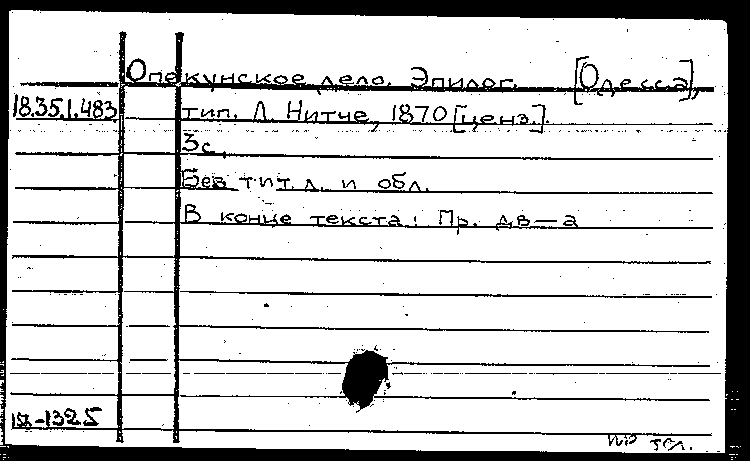 Опекунское дело. Эпилог. [Одесса],
18.35.1.483 тип. Л. Нитче, 1870 [ценз.].
3с.
Без тит. л. и обл.
В конце текста: Пр. дв—а
-1325